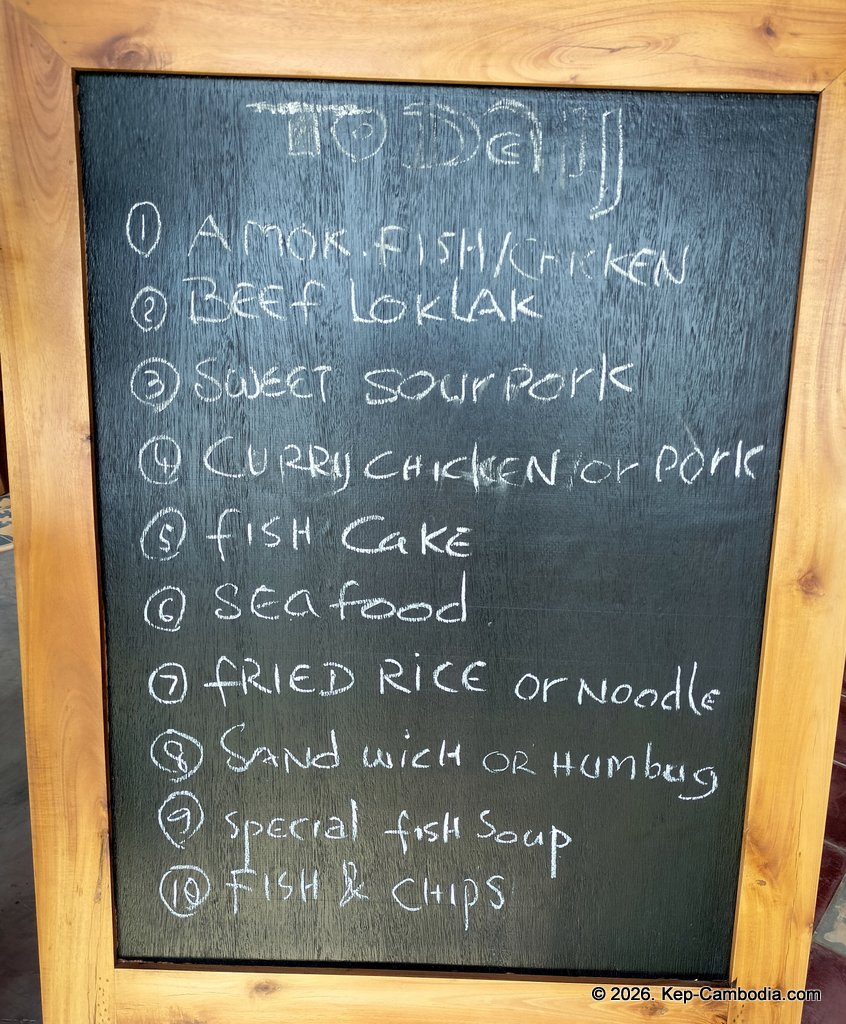 TODAY
1 AMOK. FISH/CHICKEN
2 BEEF LOKLAK
3 SWEET SOUR PORK
4 CURRY CHICKEN or PORK
5 FISH CAKE
6 SEAFOOD
7 FRIED RICE or NOODLE
8 SANDWICH OR HUMBUG
9 Special fish Soup
10 FISH & CHIPS
© 2026. Kep-Cambodia.com